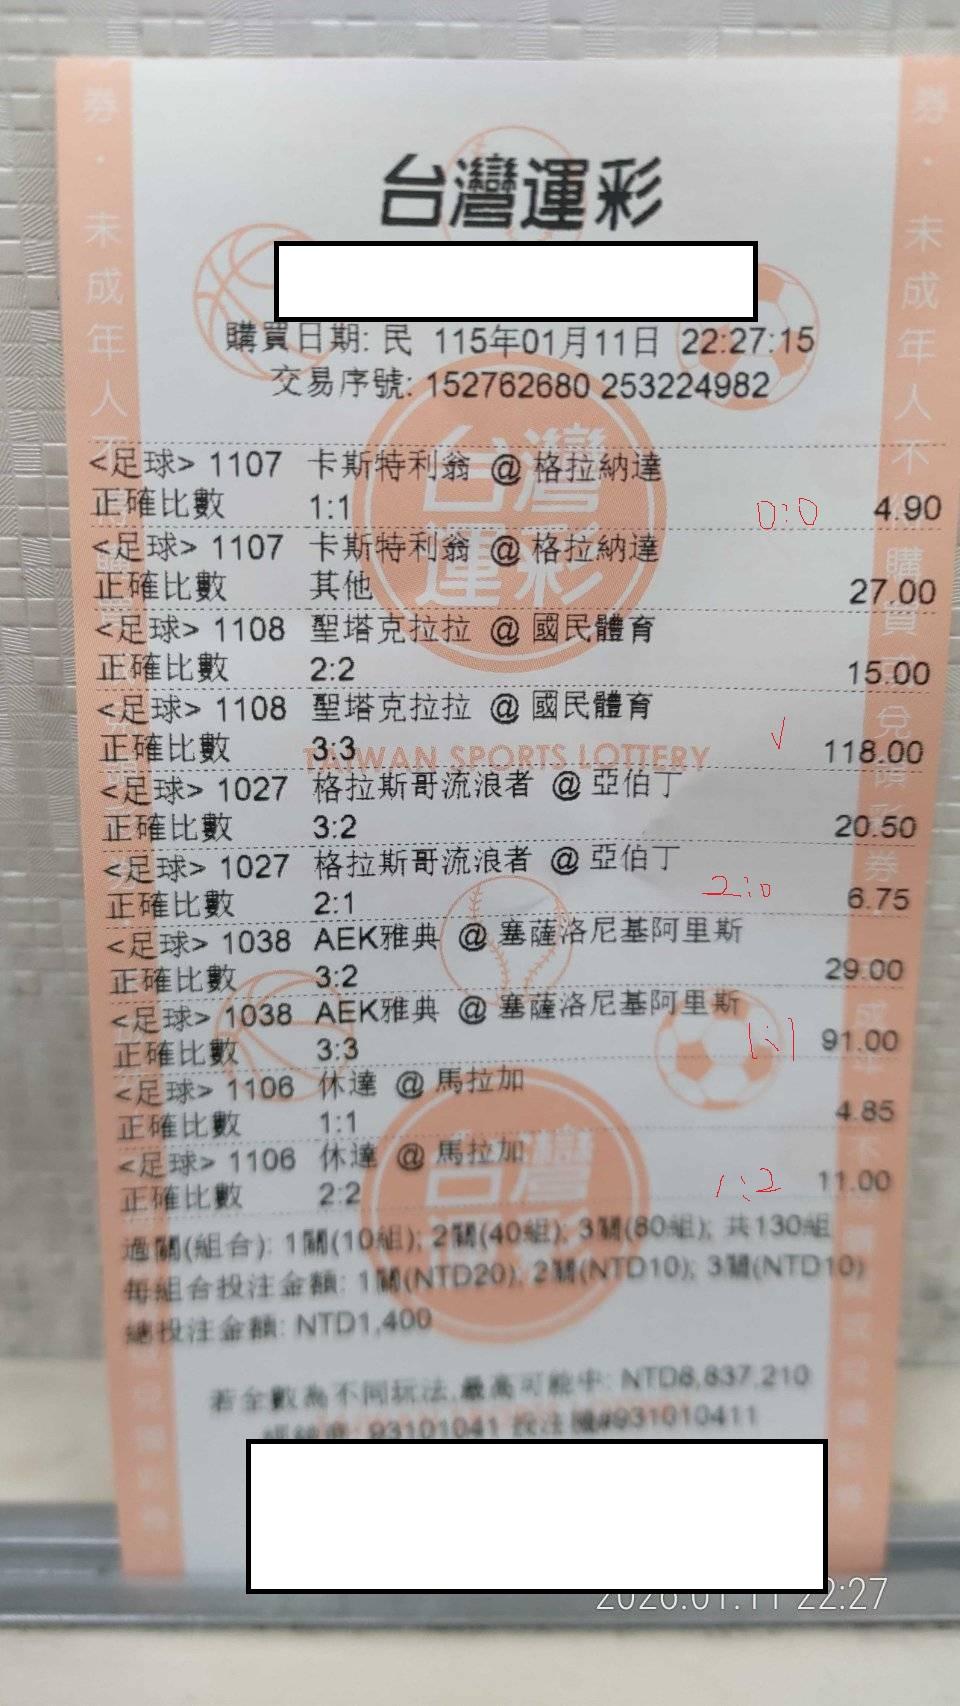 台灣運彩
購買日期: 民 115年01月11日 22:27:15
交易序號: 152762680 253224982
<足球> 1107 卡斯特利翁 @ 格拉納達
正確比數 1:1 0:0 4.90
<足球> 1107 卡斯特利翁 @ 格拉納達
正確比數 其他 27.00
<足球> 1108 聖塔克拉拉 @ 國民體育
正確比數 2:2 15.00
<足球> 1108 聖塔克拉拉 @ 國民體育
正確比數 3:3 ✓ 118.00
TAIWAN SPORTS LOTTERY
<足球> 1027 格拉斯哥流浪者 @ 亞伯丁
正確比數 3:2 20.50
<足球> 1027 格拉斯哥流浪者 @ 亞伯丁
正確比數 2:1 2:0 6.75
<足球> 1038 AEK雅典 @ 塞薩洛尼基阿里斯
正確比數 3:2 29.00
<足球> 1038 AEK雅典 @ 塞薩洛尼基阿里斯
正確比數 3:3 1:1 91.00
<足球> 1106 休達 @ 馬拉加
正確比數 1:1 4.85
<足球> 1106 休達 @ 馬拉加
正確比數 2:2 1:2 11.00
過關(組合): 1關(10組); 2關(40組); 3關(80組); 共130組
每組合投注金額: 1關(NTD20); 2關(NTD10); 3關(NTD10)
總投注金額: NTD1,400
若全數為不同玩法,最高可能中: NTD8,837,210
經銷商: 93101041 投注機#931010411
2026.01.11 22:27